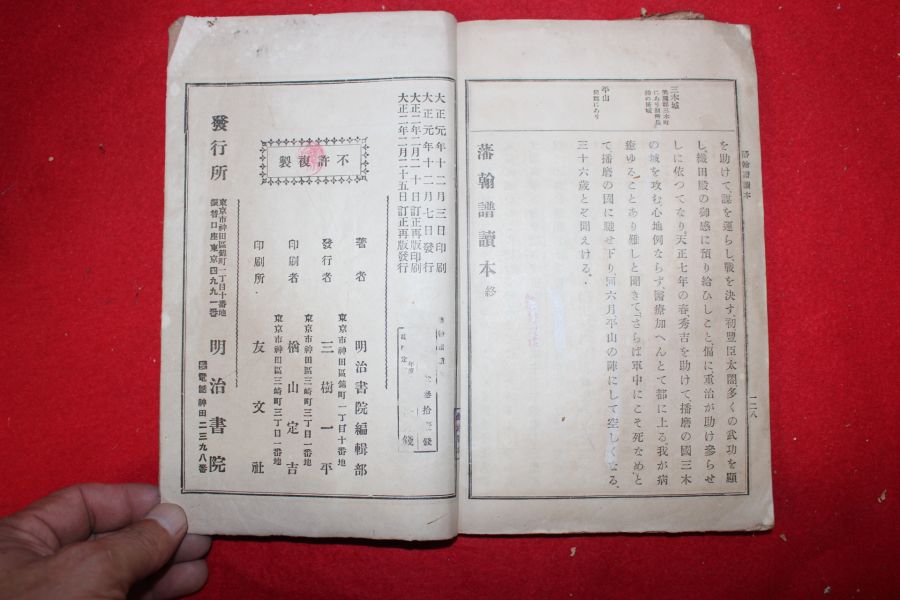 藩翰譜讀本
一二八
三木城
美囊郡三木町
にあり別所氏
平山
を助けて、謀を運らし、戰を決す、初豐臣太閤多くの武功を顯
し、織田殿の御感に預り給ひしこと、偏に重治が助け參らせ
しに依つてなり。天正七年の春、秀吉を助けて、播磨の國三木
の城を攻む、心地例ならず、醫療加へんとて都に上る。我が病
癒ゆることあり難しと聞きて、「さらば軍中にこそ死なめ」と
て、播磨の國に馳せ下り、同六月、平山の陣にして空しくなる、
三十六歲とぞ聞えける。
藩翰譜讀本 終
大正元年十二月三日印刷
大正元年十二月七日發行
大正二年二月二十日訂正再版印刷
大正二年二月二十五日訂正再版發行
不許複製
著者 明治書院編輯部
東京市神田區錦町一丁目十番地
發行者 三樹一平
東京市神田區三崎町三丁目一番地
印刷者 楢山定吉
東京市神田區三崎町三丁目一番地
印刷所 友文社
發行所 東京市神田區錦町一丁目十番地 明治書院
振替口座東京四九九一番
電話神田二三九八番